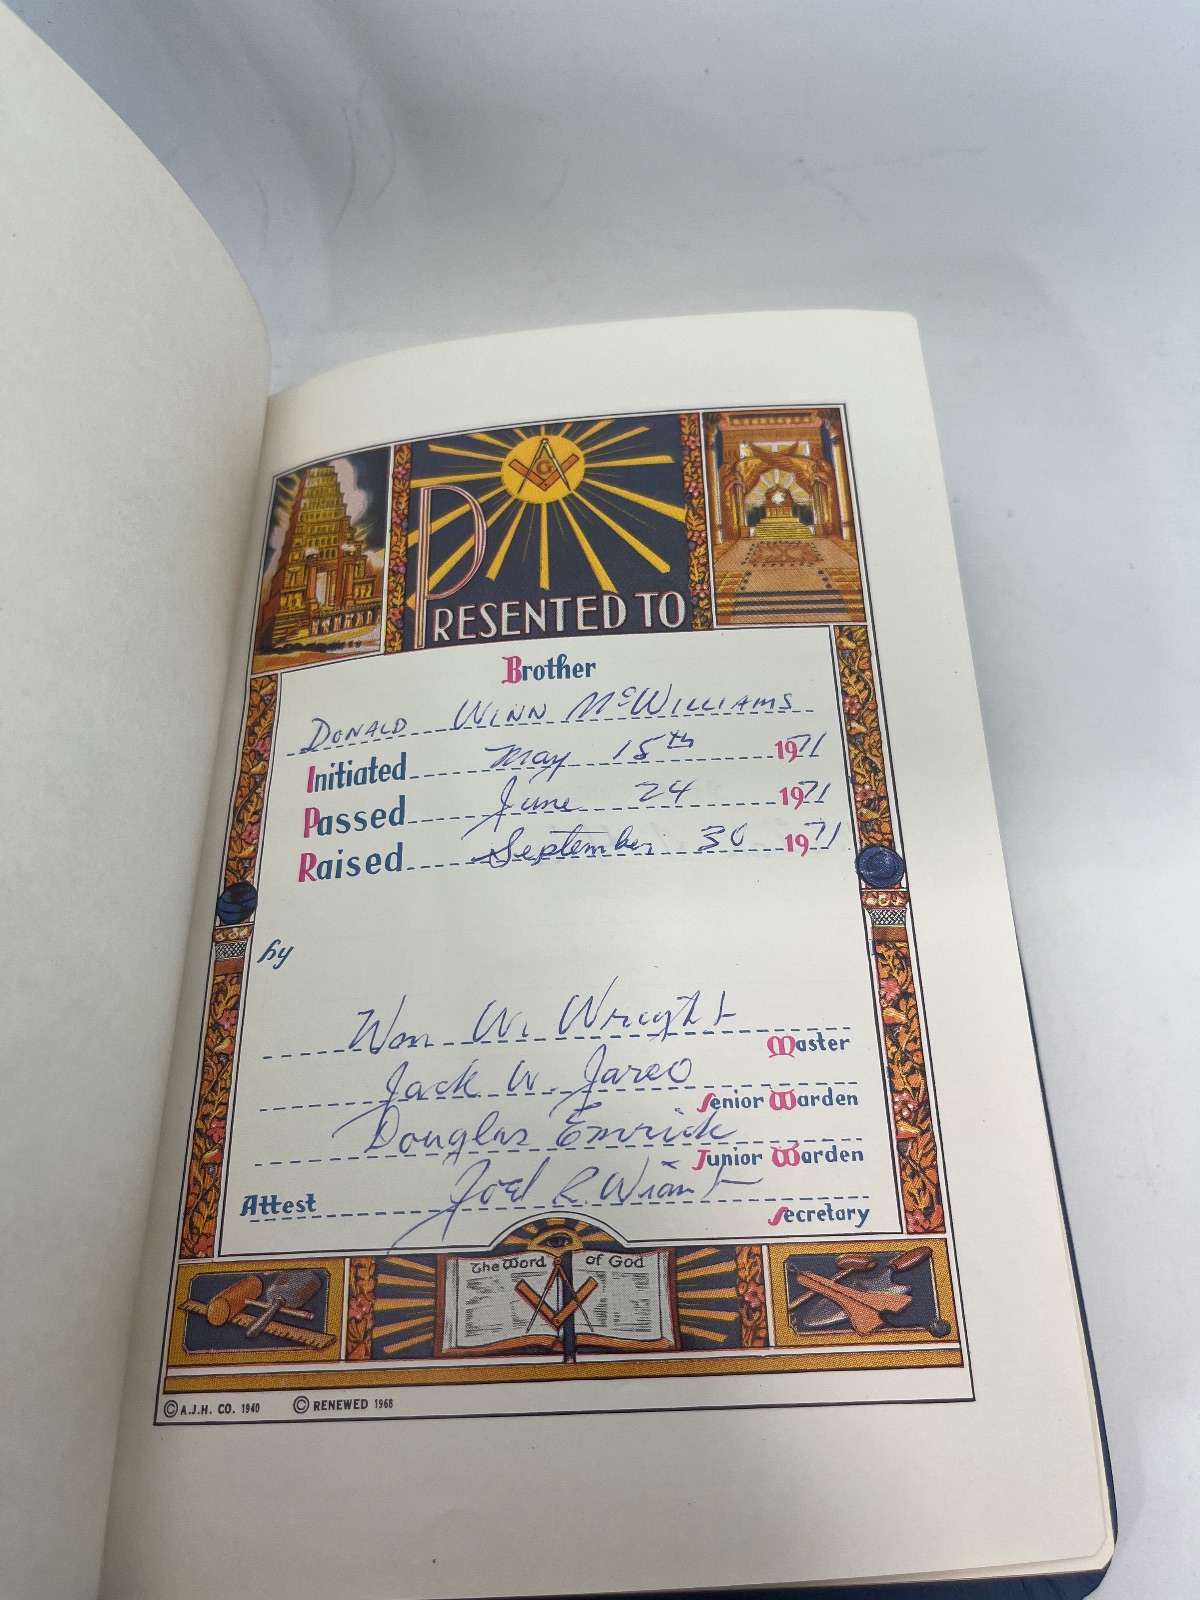 G
PRESENTED TO
Brother
DONALD WINN McWILLIAMS
Initiated May 18th 1971
Passed June 24 1971
Raised September 30 1971
by
Wm W. Wright
Master
Jack W. Jareo
Senior Warden
Douglas Emrick
Junior Warden
Attest Joel R. Wiant
Secretary
The Word of God
© A.J.H. CO. 1940 © RENEWED 1968